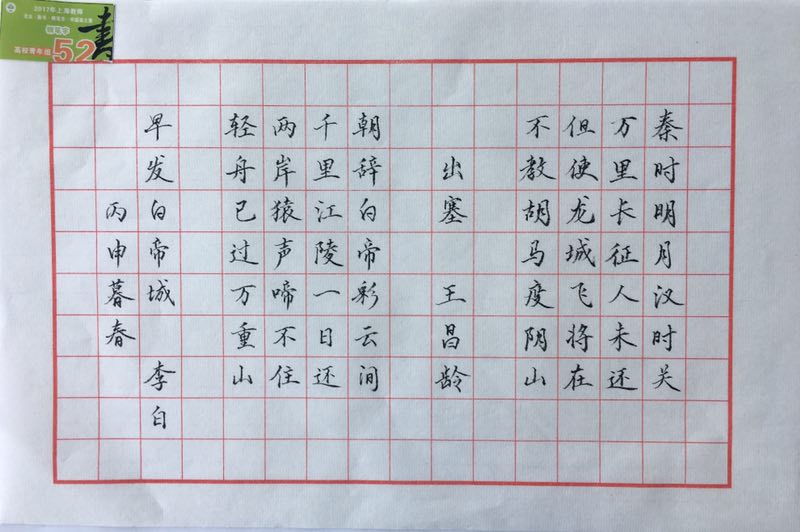 2017年上海教师
钢笔字
高校青年组
52
秦时明月汉时关
万里长征人未还
但使龙城飞将在
不教胡马度阴山
出塞 王昌龄
朝辞白帝彩云间
千里江陵一日还
两岸猿声啼不住
轻舟已过万重山
早发白帝城 李白
丙申暮春